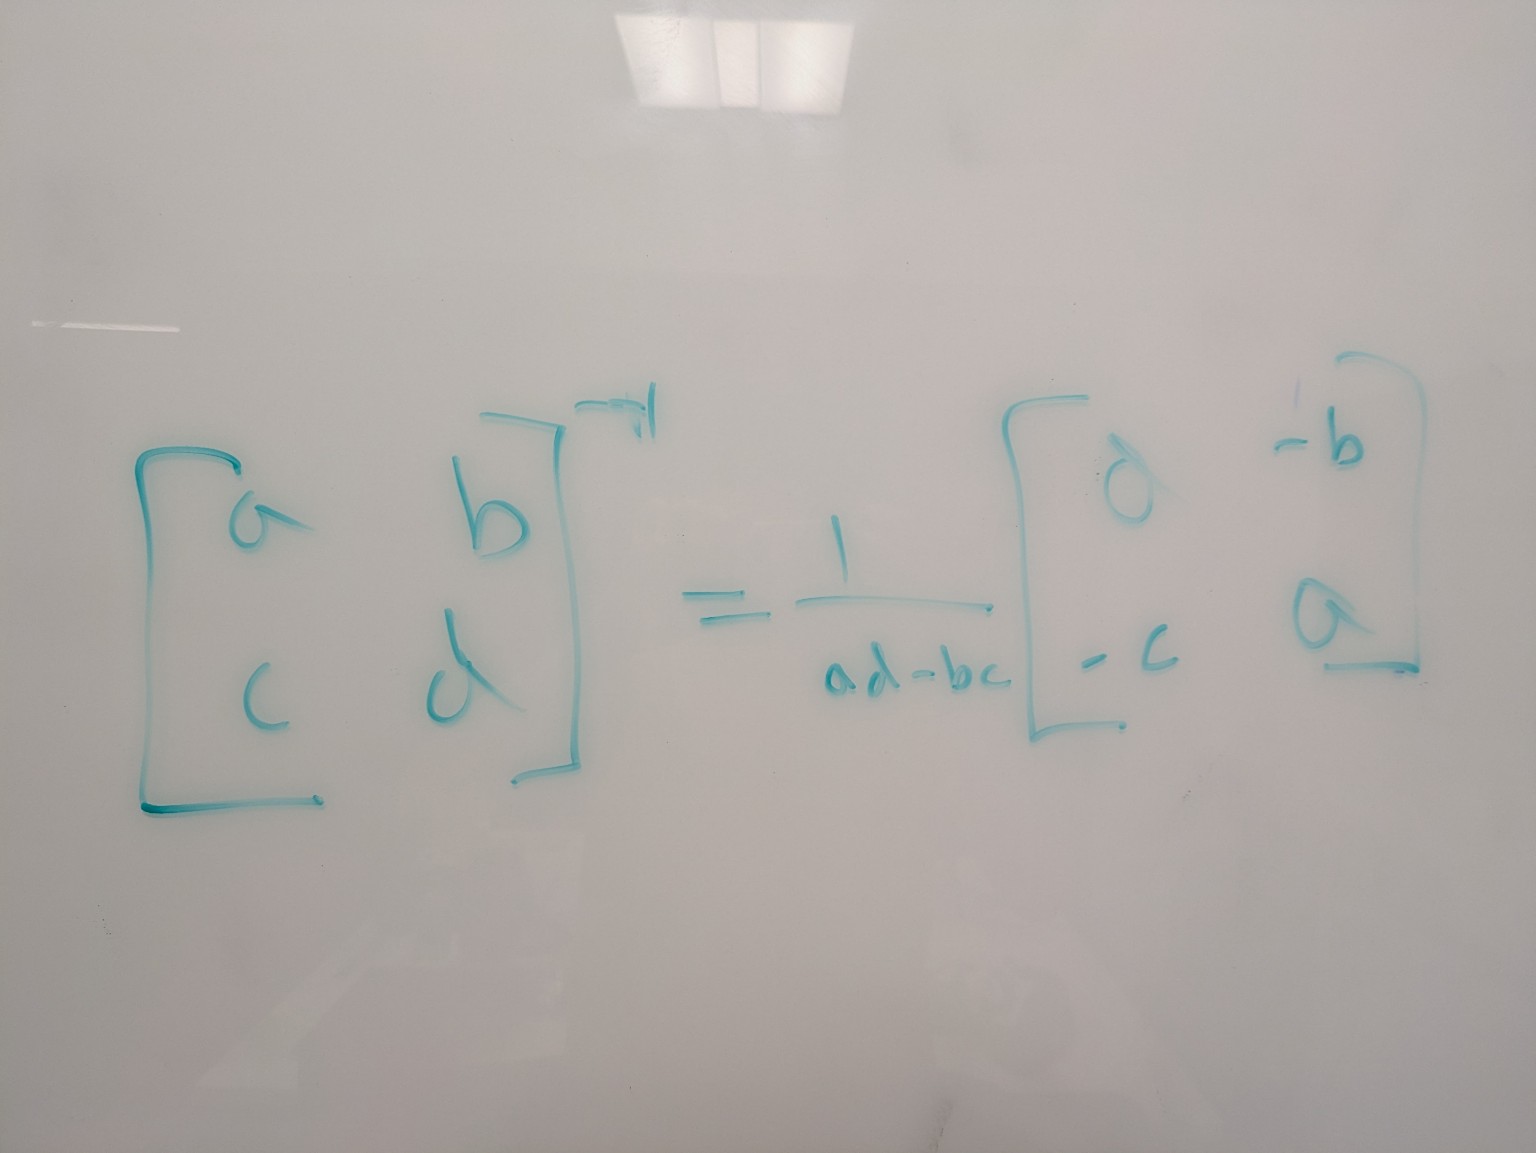 [a b; c d]^-1 = 1/(ad-bc) [d -b; -c a]